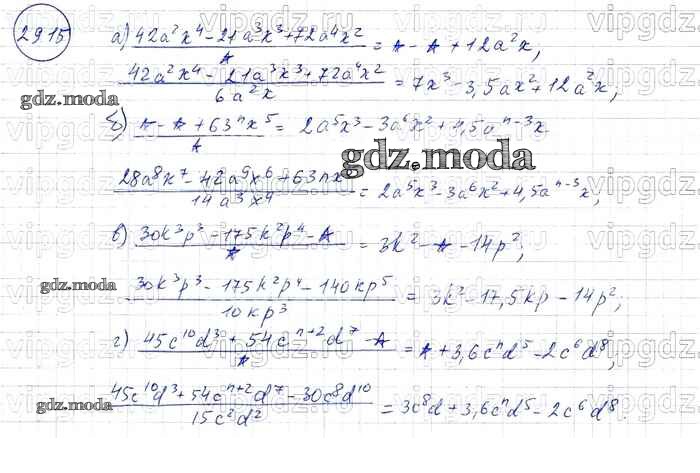 2915
а) (42a²x⁴ - 21a³x³ + 72a⁴x²)/A = A - A + 12a²x,
(42a²x⁴ - 21a³x³ + 72a⁴x²)/(6a²x) = 7x³ - 3,5ax² + 12a²x;
gdz.moda
б) (A - A + 63ⁿx⁵)/A = 2a⁵x³ - 3a⁶x² + 4,5aⁿ⁻³x
gdz.moda
(28a⁸x⁷ - 42a⁹x⁶ + 63nx)/(14a³x⁴) = 2a⁵x³ - 3a⁶x² + 4,5aⁿ⁻³x,
в) (30k³p³ - 175k²p⁴ - A)/A = 3k² - A - 14p²;
gdz.moda
(30k³p³ - 175k²p⁴ - 140kp⁵)/(10kp³) = 3k² - 17,5kp - 14p²;
г) (45c¹⁰d³ + 54cⁿ⁺²d⁷ - A)/A = A + 3,6cⁿd⁵ - 2c⁶d⁸,
gdz.moda
(45c¹⁰d³ + 54cⁿ⁺²d⁷ - 30c⁸d¹⁰)/(15c²d²) = 3c⁸d + 3,6cⁿd⁵ - 2c⁶d⁸.